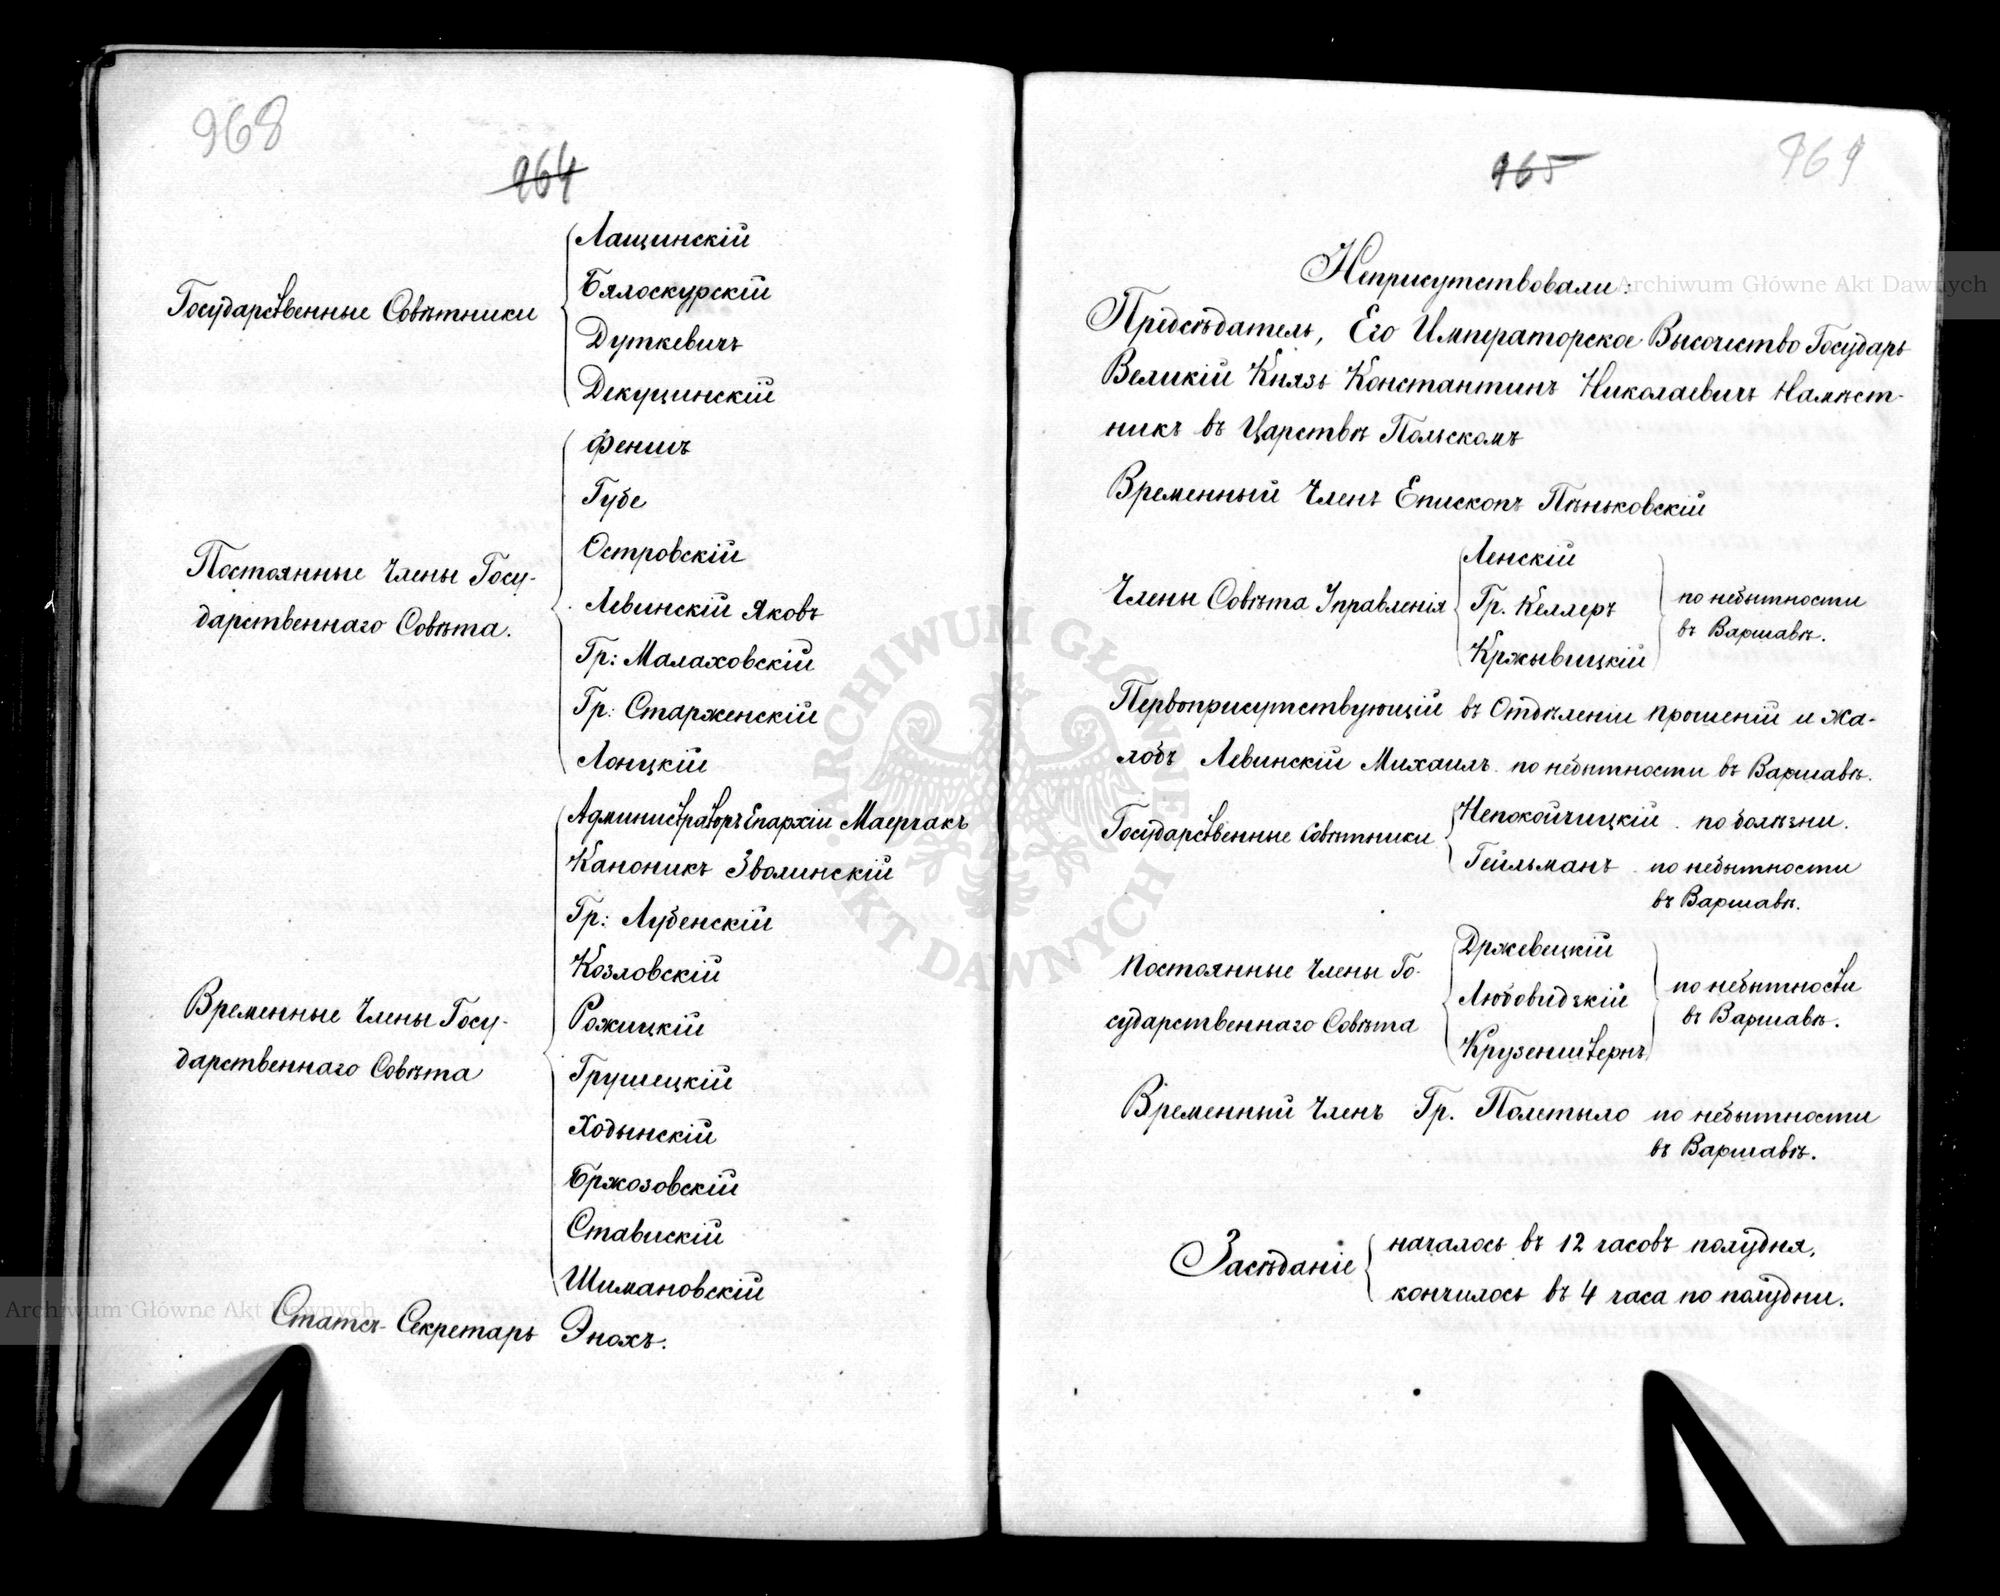 968
964
Государственные Совѣтники
Лащинскій
Бялоскурскій
Дуткевичъ
Декуцинскій
Постоянные Члены Госу-
дарственнаго Совѣта.
Феншъ
Губе
Островскій
Левинскій Яковъ
Гр: Малаховскій
Гр: Старженскій
Лонцкій
Временные Члены Госу-
дарственнаго Совѣта
Администраторъ Епархіи Маерчакъ
Каноникъ Зволинскій
Гр: Лубенскій
Козловскій
Рожицкій
Грушецкій
Ходынскій
Бржозовскій
Ставискій
Шимановскій
Статсъ-Секретарь Энохъ.
969
965
Неприсутствовали:
Предсѣдатель, Его Императорское Высочество Государь
Великій Князь Константинъ Николаевичъ Намѣст-
никъ въ Царствѣ Польскомъ
Временный Членъ Епископъ Пѣньковскій
Члены Совѣта Управленія
Ленскій
Гр. Келлеръ
Кржывицкій
по небытности
въ Варшавѣ.
Первоприсутствующій въ Отдѣленіи прошеній и жа-
лобъ Левинскій Михаилъ по небытности въ Варшавѣ.
Государственные Совѣтники
Непокойчицкій по болѣзни.
Гейльманъ по небытности
въ Варшавѣ.
Постоянные Члены Го-
сударственнаго Совѣта
Држевецкій
Любовидзкій
Крузенштернъ
по небытности
въ Варшавѣ.
Временный Членъ Гр. Полетыло по небытности
въ Варшавѣ.
Засѣданіе
началось въ 12 часовъ полудня,
кончилось въ 4 часа по полудни.
Archiwum Główne Akt Dawnych
Archiwum Główne Akt Dawnych
ARCHIWUM GŁÓWNE AKT DAWNYCH